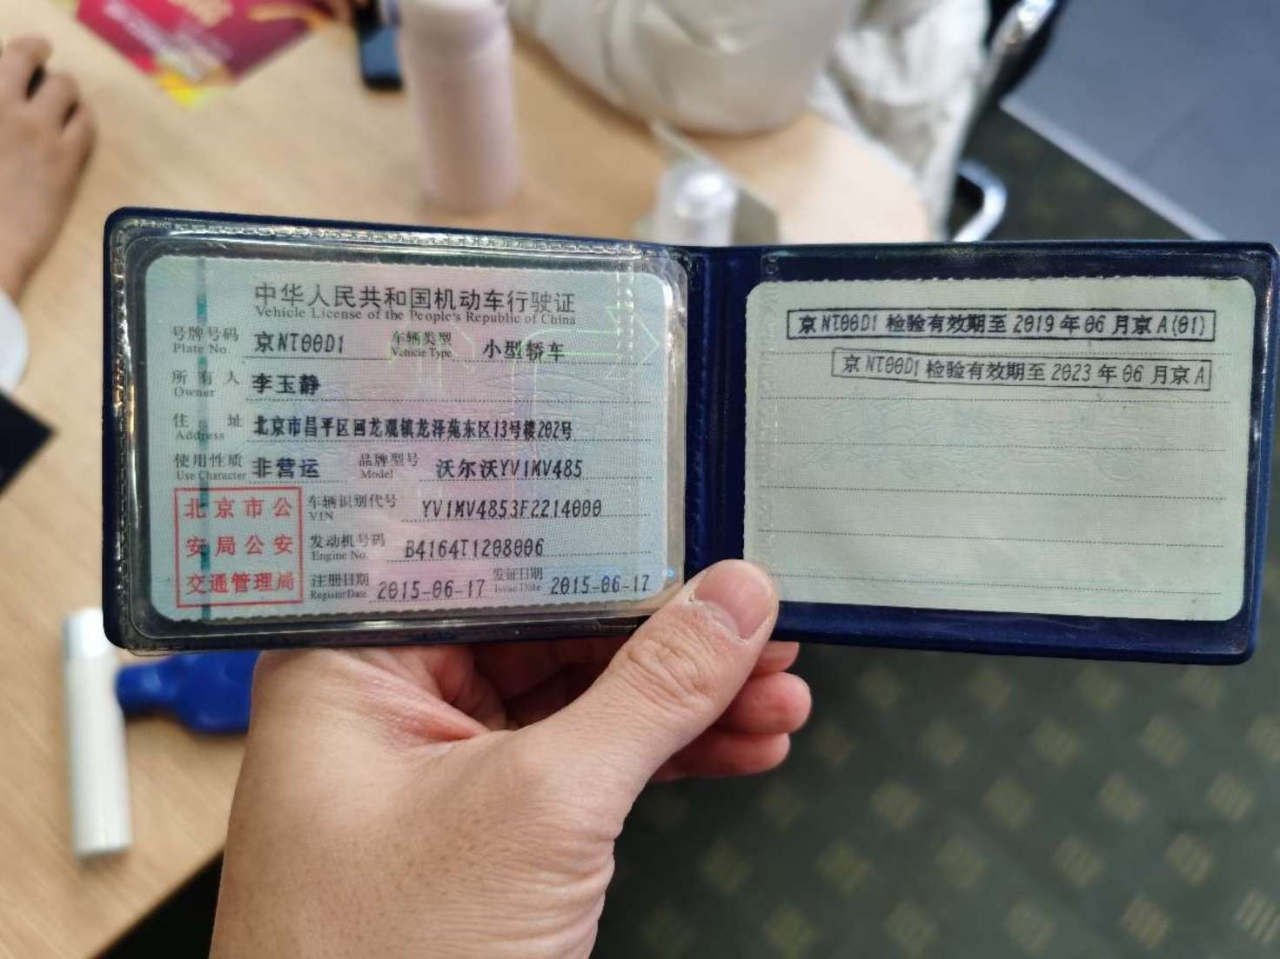 中华人民共和国机动车行驶证
Vehicle License of the People's Republic of China
号牌号码 京NT00D1 车辆类型 小型轿车
Plate No. Vehicle Type
所有人 李玉静
Owner
住址 北京市昌平区回龙观镇龙泽苑东区13号楼202号
Address
使用性质 非营运 品牌型号 沃尔沃YV1MV485
Use Character Model
北京市公
安局公安
交通管理局
车辆识别代号 YV1MV4853F2214000
VIN
发动机号码 B4164T1208006
Engine No.
注册日期 2015-06-17 发证日期 2015-06-17
Register Date Issue Date
京NT00D1 检验有效期至 2019 年 06 月京 A(01)
京 NT00D1 检验有效期至 2023 年 06 月京 A